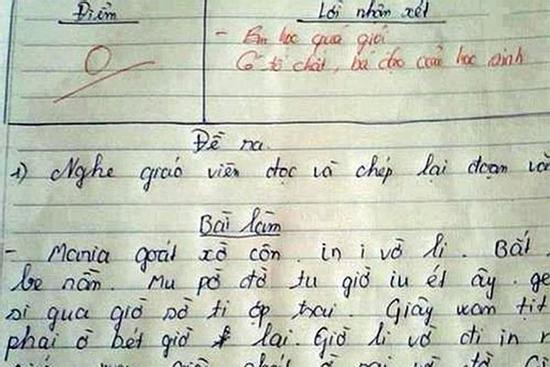 Điểm
Lời nhận xét
0
- Em học quá giỏi
Có tố chất, bá đạo của học sinh
Đề ra.
1) Nghe giáo viên đọc và chép lại đoạn
Bài làm
- Mania goát xờ côn. in i vờ li. Bất
be nần. Mu pờ đờ tu giờ iu ét ây. ge
si qua giờ sờ ti ốp trai. Giây wam tịt
phai ờ bét giờ lai. Giờ li vờ đi in